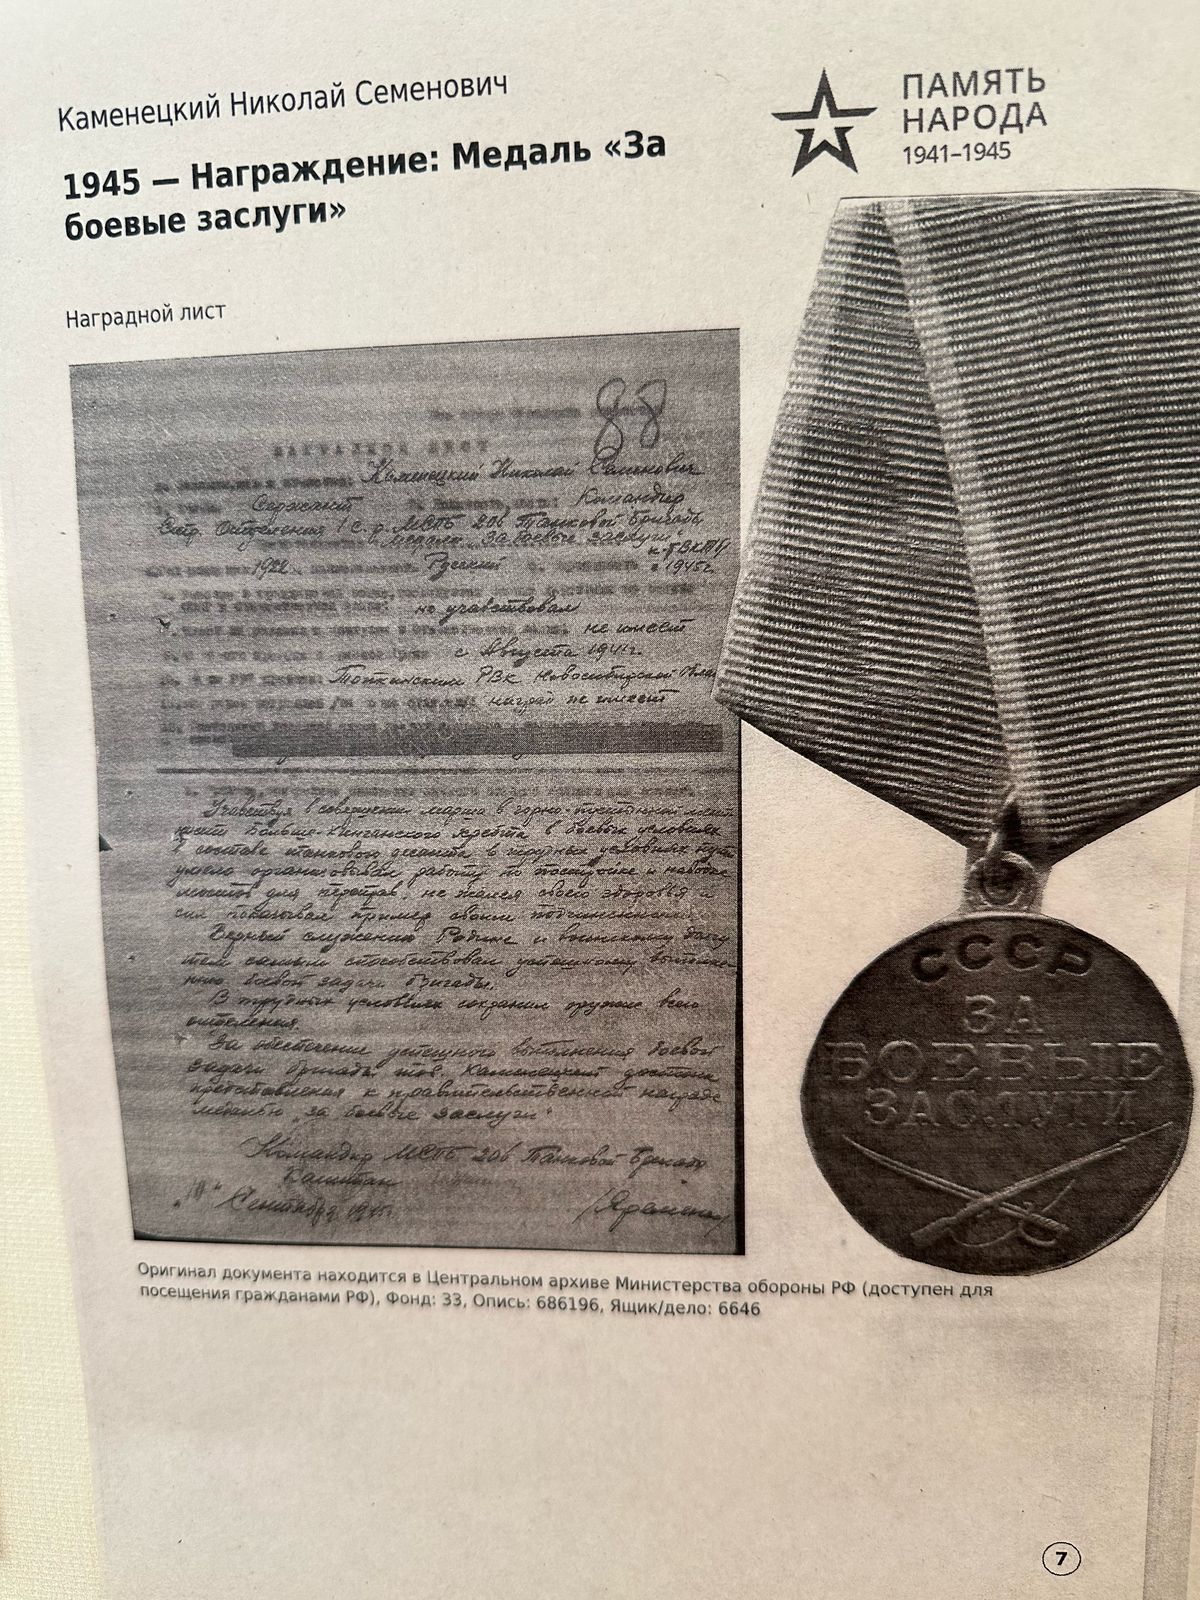 Каменецкий Николай Семенович
1945 — Награждение: Медаль «За
боевые заслуги»
ПАМЯТЬ
НАРОДА
1941–1945
Наградной лист
88
НАГРАДНОЙ ЛИСТ
Каменецкий Николай Семенович
Сержант Командир
Стр. Отделения 1 с.р. МСПБ 206 Танковой Бригады
к медали "За боевые заслуги"
1922 Русский к-т ВКП(б)
с 1945г.
не участвовал
не имеет
с Августа 1941г.
Топкинским РВК Новосибирской Обла
наград не имеет
Участвуя в совершении марша в горно-пустынной мест
ности Больше-Хинганского хребта в боевых условиях
в составе танкового десанта в трудных условиях пути
умело организовывал работу по постройке и наводке
мостов для переправ, не жалея своего здоровья и
сил показывал пример своим подчиненным.
Верный служению Родине и воинскому долгу
тем самым способствовал успешному выполне
нию боевой задачи бригады.
В трудных условиях сохранил оружие всего
отделения.
За обеспечение успешного выполнения боевой
задачи бригады тов. Каменецкий достоин
представления к правительственной награде
медалью "за боевые заслуги"
Командир МСПБ 206 Танковой Бригады
Капитан
"10" Сентября 1945г.
СССР
ЗА
БОЕВЫЕ
ЗАСЛУГИ
Оригинал документа находится в Центральном архиве Министерства обороны РФ (доступен для
посещения гражданами РФ), Фонд: 33, Опись: 686196, Ящик/дело: 6646
7